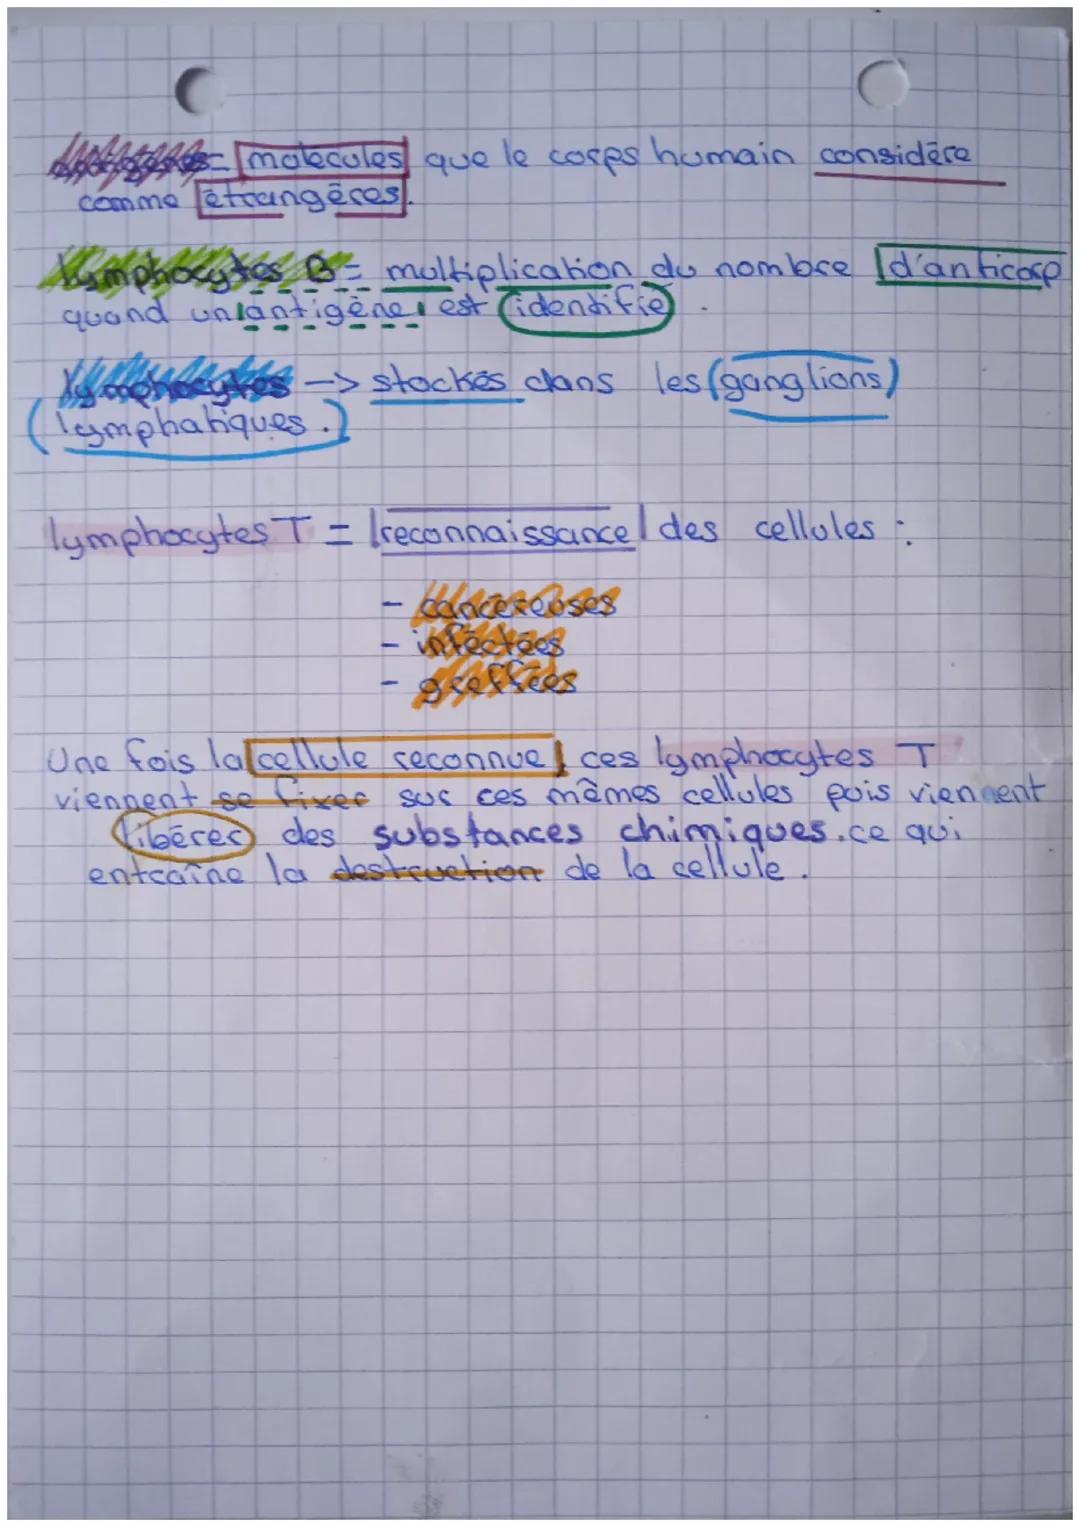 antigènes = molécules que le corps humain considère
comme étrangères.
lymphocytes B = multiplication du nombre d'anticorp
quand un antigène est identifié.
lymphocytes -> stockés dans les (ganglions)
(lymphatiques.)
lymphocytes T = reconnaissance des cellules :
- cancéreuses
- infectées
- greffées
Une fois la cellule reconnue, ces lymphocytes T
viennent se fixer sur ces mêmes cellules puis viennent
libérer des substances chimiques.ce qui
entraîne la destruction de la cellule.